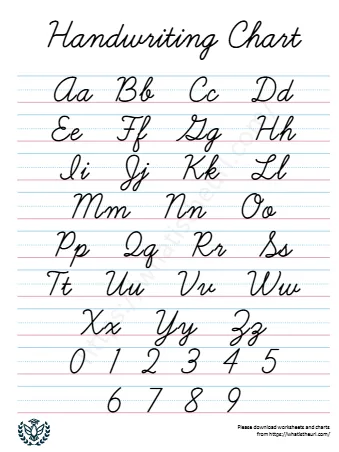 Handwriting Chart
Aa Bb Cc Dd
Ee Ff Gg Hh
Ii Jj Kk Ll
Mm Nn Oo
Pp Qq Rr Ss
Tt Uu Vv Ww
Xx Yy Zz
0 1 2 3 4 5
6 7 8 9
Please download worksheets and charts
from https://whatistheurl.com/